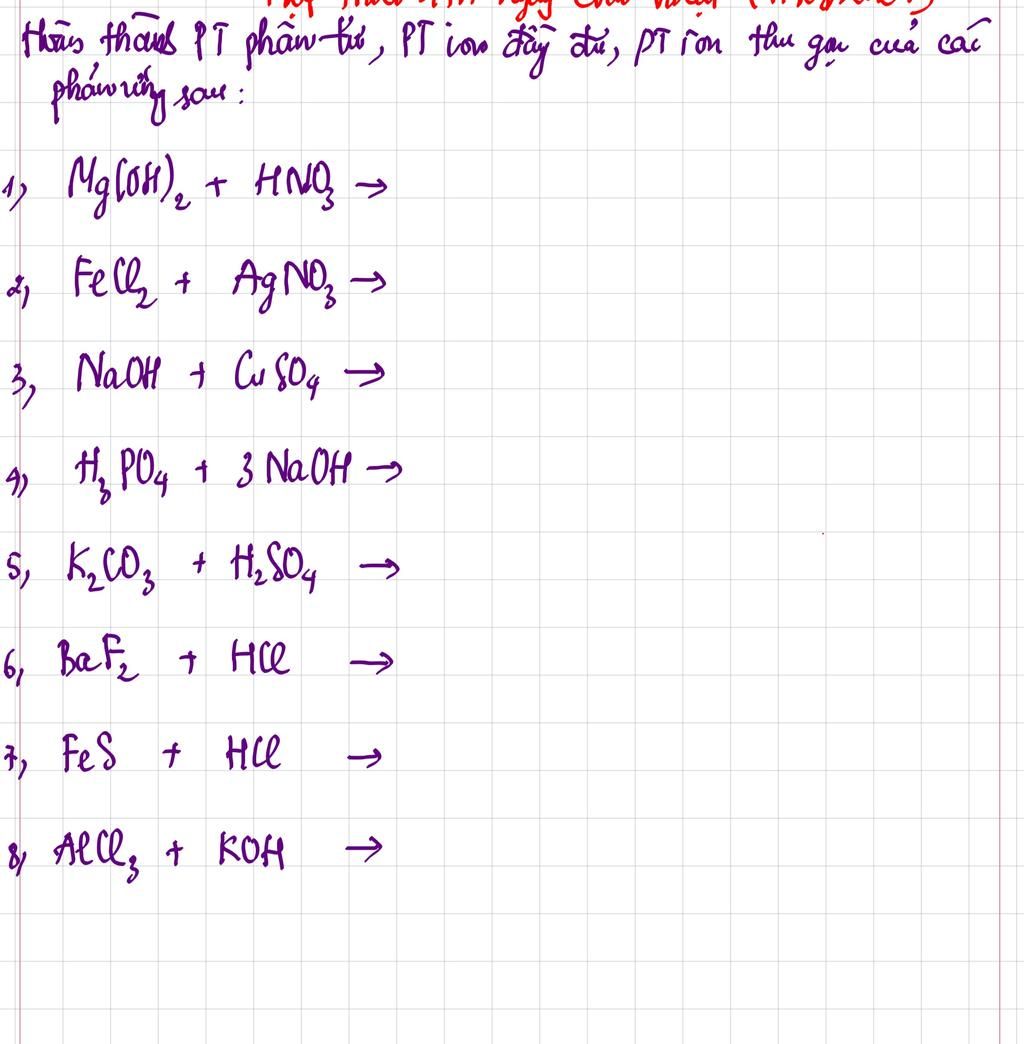 Hoàn thành PT phân tử, PT ion đầy đủ, PT ion thu gọn của các
phản ứng sau:
1) Mg(OH)₂ + HNO₃ →
2) FeCl₂ + AgNO₃ →
3) NaOH + CuSO₄ →
4) H₃PO₄ + 3 NaOH →
5) K₂CO₃ + H₂SO₄ →
6) BaF₂ + HCl →
7) FeS + HCl →
8) AlCl₃ + KOH →